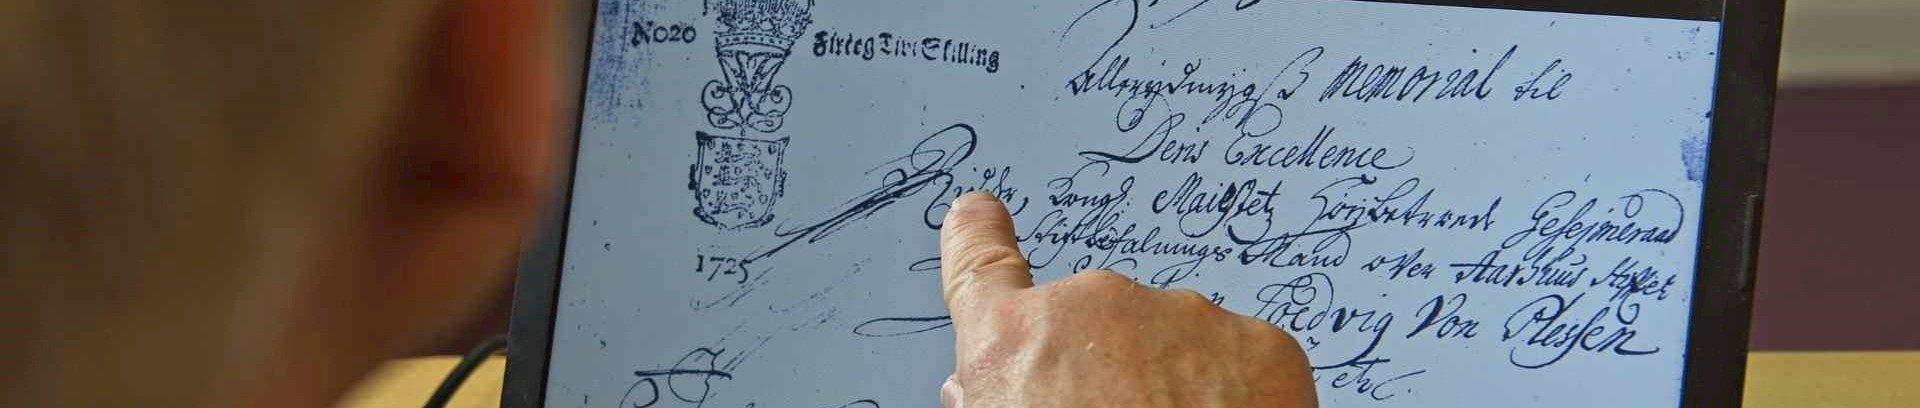 No20
Fireog Tive Skilling
1725
Allerydmygst Memorial til
Deris Excellence
Ridder, Kongl: Maiestet Høybetroede Geheimeraad
Stiftbefalnings Mand over Aarhuus Stiftet
Ludvig Von Plessen
etc.